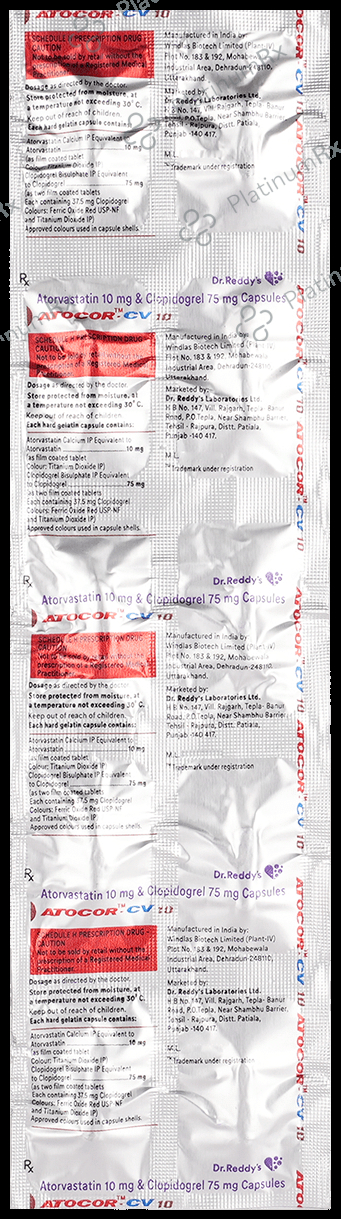 ATOCOR™-CV 10
SCHEDULE H PRESCRIPTION DRUG
CAUTION
Not to be sold by retail without the
prescription of a Registered Medical
Practitioner.
Dosage as directed by the doctor.
Store protected from moisture, at
a temperature not exceeding 30°C.
Keep out of reach of children.
Each hard gelatin capsule contains:
Atorvastatin Calcium IP Equivalent to
Atorvastatin 10 mg
(as film coated tablet
Colour: Titanium Dioxide IP)
Clopidogrel Bisulphate IP Equivalent
to Clopidogrel 75 mg
(as two film coated tablets
Each containing 37.5 mg Clopidogrel
Colours: Ferric Oxide Red USP-NF
and Titanium Dioxide IP)
Approved colours used in capsule shells.
Manufactured in India by:
Windlas Biotech Limited (Plant-IV)
Plot No. 183 & 192, Mohabewala
Industrial Area, Dehradun-248110,
Uttarakhand.
Marketed by:
Dr. Reddy's Laboratories Ltd.
H B No. 147, Vill. Rajgarh, Tepla- Banur
Road, P.O. Tepla, Near Shambhu Barrier,
Tehsil - Rajpura, Distt. Patiala,
Punjab -140 417.
M.L.
™Trademark under registration
PlatinumRx
Rx
Dr.Reddy's
Atorvastatin 10 mg & Clopidogrel 75 mg Capsules
ATOCOR™-CV 10
SCHEDULE H PRESCRIPTION DRUG -
CAUTION
Not to be sold by retail without the
prescription of a Registered Medical
Practitioner.
Dosage as directed by the doctor.
Store protected from moisture, at
a temperature not exceeding 30°C.
Keep out of reach of children.
Each hard gelatin capsule contains:
Atorvastatin Calcium IP Equivalent to
Atorvastatin 10 mg
(as film coated tablet
Colour: Titanium Dioxide IP)
Clopidogrel Bisulphate IP Equivalent
to Clopidogrel 75 mg
(as two film coated tablets
Each containing 37.5 mg Clopidogrel
Colours: Ferric Oxide Red USP-NF
and Titanium Dioxide IP)
Approved colours used in capsule shells.
Manufactured in India by:
Windlas Biotech Limited (Plant-IV)
Plot No. 183 & 192, Mohabewala
Industrial Area, Dehradun-248110,
Uttarakhand.
Marketed by:
Dr. Reddy's Laboratories Ltd.
H B No. 147, Vill. Rajgarh, Tepla- Banur
Road, P.O. Tepla, Near Shambhu Barrier,
Tehsil - Rajpura, Distt. Patiala,
Punjab -140 417.
M.L.
™Trademark under registration
Rx
Dr.Reddy's
Atorvastatin 10 mg & Clopidogrel 75 mg Capsules
ATOCOR™-CV 10
SCHEDULE H PRESCRIPTION DRUG -
CAUTION
Not to be sold by retail without the
prescription of a Registered Medical
Practitioner.
Dosage as directed by the doctor.
Store protected from moisture, at
a temperature not exceeding 30°C.
Keep out of reach of children.
Each hard gelatin capsule contains:
Atorvastatin Calcium IP Equivalent to
Atorvastatin 10 mg
(as film coated tablet
Colour: Titanium Dioxide IP)
Clopidogrel Bisulphate IP Equivalent
to Clopidogrel 75 mg
(as two film coated tablets
Each containing 37.5 mg Clopidogrel
Colours: Ferric Oxide Red USP-NF
and Titanium Dioxide IP)
Approved colours used in capsule shells.
Manufactured in India by
Windlas Biotech Limited (Plant-IV)
Plot No. 183 & 192, Mohabewala
Industrial Area, Dehradun-248110,
Uttarakhand.
Marketed by:
Dr. Reddy's Laboratories Ltd.
H B No. 147, Vill. Rajgarh, Tepla- Banur
Road, P.O. Tepla, Near Shambhu Barrier,
Tehsil - Rajpura, Distt. Patiala,
Punjab -140 417.
M.L.
™Trademark under registration
Rx
Dr.Reddy's
Atorvastatin 10 mg & Clopidogrel 75 mg Capsules
ATOCOR™-CV 10
SCHEDULE H PRESCRIPTION DRUG -
CAUTION
Not to be sold by retail without the
prescription of a Registered Medical
Practitioner.
Dosage as directed by the doctor.
Store protected from moisture, at
a temperature not exceeding 30°C.
Keep out of reach of children.
Each hard gelatin capsule contains:
Atorvastatin Calcium IP Equivalent to
Atorvastatin 10 mg
(as film coated tablet
Colour: Titanium Dioxide IP)
Clopidogrel Bisulphate IP Equivalent
to Clopidogrel 75 mg
(as two film coated tablets
Each containing 37.5 mg Clopidogrel
Colours: Ferric Oxide Red USP-NF
and Titanium Dioxide IP)
Approved colours used in capsule shells.
Manufactured in India by:
Windlas Biotech Limited (Plant-IV)
Plot No. 183 & 192, Mohabewala
Industrial Area, Dehradun-248110,
Uttarakhand.
Marketed by:
Dr. Reddy's Laboratories Ltd.
H B No. 147, Vill. Rajgarh, Tepla- Banur
Road, P.O. Tepla, Near Shambhu Barrier,
Tehsil - Rajpura, Distt. Patiala,
Punjab -140 417.
M.L.
™Trademark under registration
Rx
Dr.Reddy's
Atorvastatin 10 mg & Clopidogrel 75 mg Capsules
ATOCOR™-CV 10